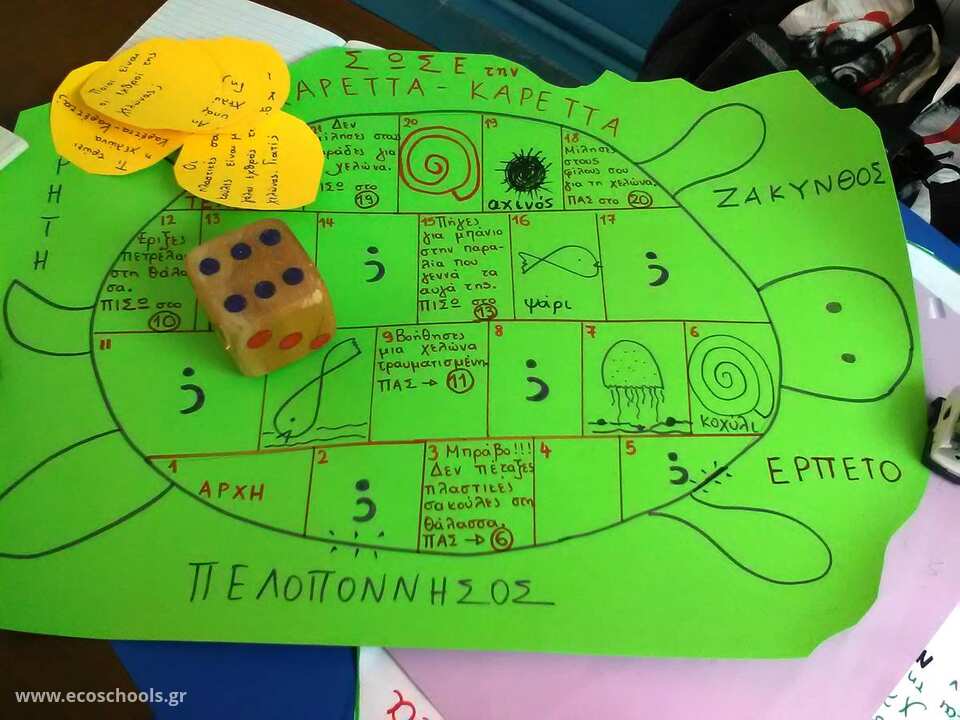 ΣΩΣΕ την
ΚΑΡΕΤΤΑ - ΚΑΡΕΤΤΑ
Ποιοι είναι
οι εχθροί της
χελώνας;
Τι τρώει
η χελώνα
καρέττα καρέττα;
ΖΑΚΥΝΘΟΣ
ΡΗΤΗ
21 Δεν
μίλησες στους
για
χελώνα.
ΠΙΣΩ στο
19
20
19
αχινός
18
Μίλησες
στους
φίλους σου
για τη χελώνα.
ΠΑΣ στο 20
12
Έριξες
πετρέλαιο
στη θάλασ
σα.
ΠΙΣΩ στο
10
13
14
;
15 Πήγες
για μπάνιο
στην παρα-
λία που
γεννά τα
αυγά της.
ΠΙΣΩ στο
13
16
ψάρι
17
;
11
;
9 Βοήθησες
μια χελώνα
τραυματισμένη.
ΠΑΣ → 11
8
;
7
6
κοχύλι
1
ΑΡΧΗ
2
;
3 Μπράβο!!!
Δεν πέταξες
πλαστικές
σακούλες στη
θάλασσα.
ΠΑΣ → 6
4
5
;
ΕΡΠΕΤΟ
ΠΕΛΟΠΟΝΝΗΣΟΣ
www.ecoschools.gr